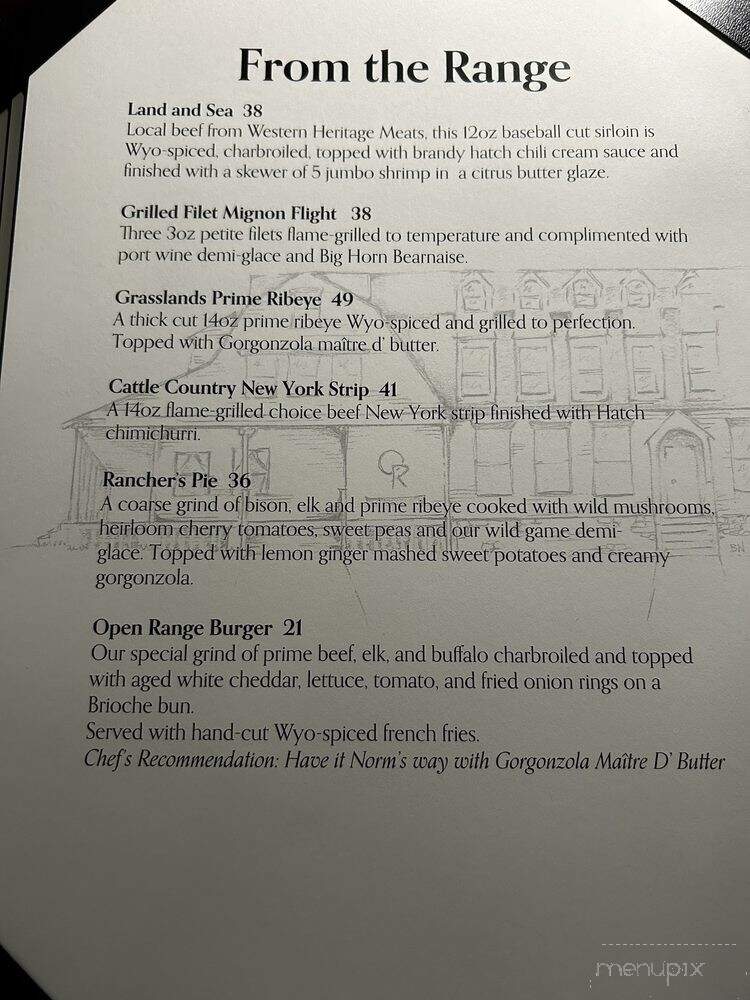 From the Range
Land and Sea 38
Local beef from Western Heritage Meats, this 12oz baseball cut sirloin is
Wyo-spiced, charbroiled, topped with brandy hatch chili cream sauce and
finished with a skewer of 5 jumbo shrimp in a citrus butter glaze.
Grilled Filet Mignon Flight 38
Three 3oz petite filets flame-grilled to temperature and complimented with
port wine demi-glace and Big Horn Bearnaise.
Grasslands Prime Ribeye 49
A thick cut 14oz prime ribeye Wyo-spiced and grilled to perfection.
Topped with Gorgonzola maître d' butter.
Cattle Country New York Strip 41
A 14oz flame-grilled choice beef New York strip finished with Hatch
chimichurri.
Rancher's Pie 36
A coarse grind of bison, elk and prime ribeye cooked with wild mushrooms,
heirloom cherry tomatoes, sweet peas and our wild game demi-
glace. Topped with lemon ginger mashed sweet potatoes and creamy
gorgonzola.
Open Range Burger 21
Our special grind of prime beef, elk, and buffalo charbroiled and topped
with aged white cheddar, lettuce, tomato, and fried onion rings on a
Brioche bun.
Served with hand-cut Wyo-spiced french fries.
Chef's Recommendation: Have it Norm's way with Gorgonzola Maître D' Butter
menupix